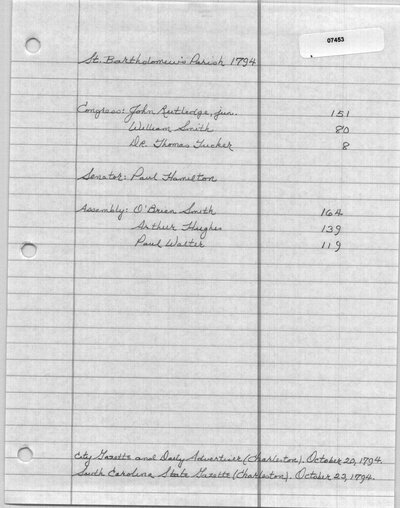 07453
St. Bartholomew's Parish 1794
Congress: John Rutledge, jun. 151
William Smith 80
Dr. Thomas Tucker 8
Senator: Paul Hamilton
Assembly: O'Brien Smith 164
Arthur Hughes 139
Paul Walter 119
City Gazette and Daily Advertiser (Charleston). October 20, 1794.
South Carolina State Gazette (Charleston). October 20, 1794.